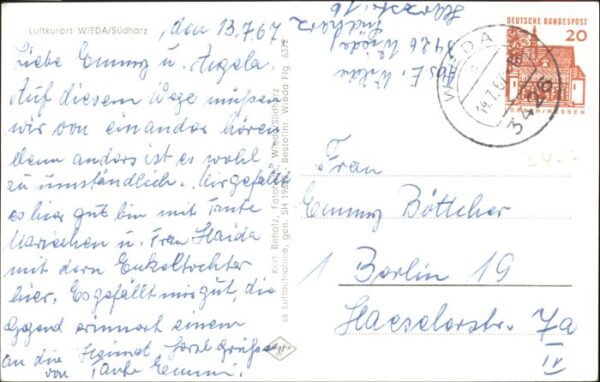 Luftkurort WIEDA/Südharz
, den 13.7.67
Liebe Emmy u. Angela.
Auf diesem Wege müssen
wir von einander hören
denn anders ist es wohl
zu umständlich. Mir gefällt
es hier gut bin mit Tante
Mariechen u. Frau Haida
mit dern Enkeltochter
hier. Es gefällt mir gut, die
Gegend erinnert einem
an die Heimat herzl Grüße
von Tante Emmi.
Kurt Beholz, Fotohaus Wieda/Südharz
Bestellnr. Wieda Flg 6372
ss Luftaufnahme, gen. SH
Abs E.
3426 Wieda/
Südharz
16
DEUTSCHE BUNDESPOST
20
LORSCH/HESSEN
WIEDA
14.7.67
3426
Frau
Emmy Böttcher
1 Berlin 19
Haeselerstr. 7a
IV